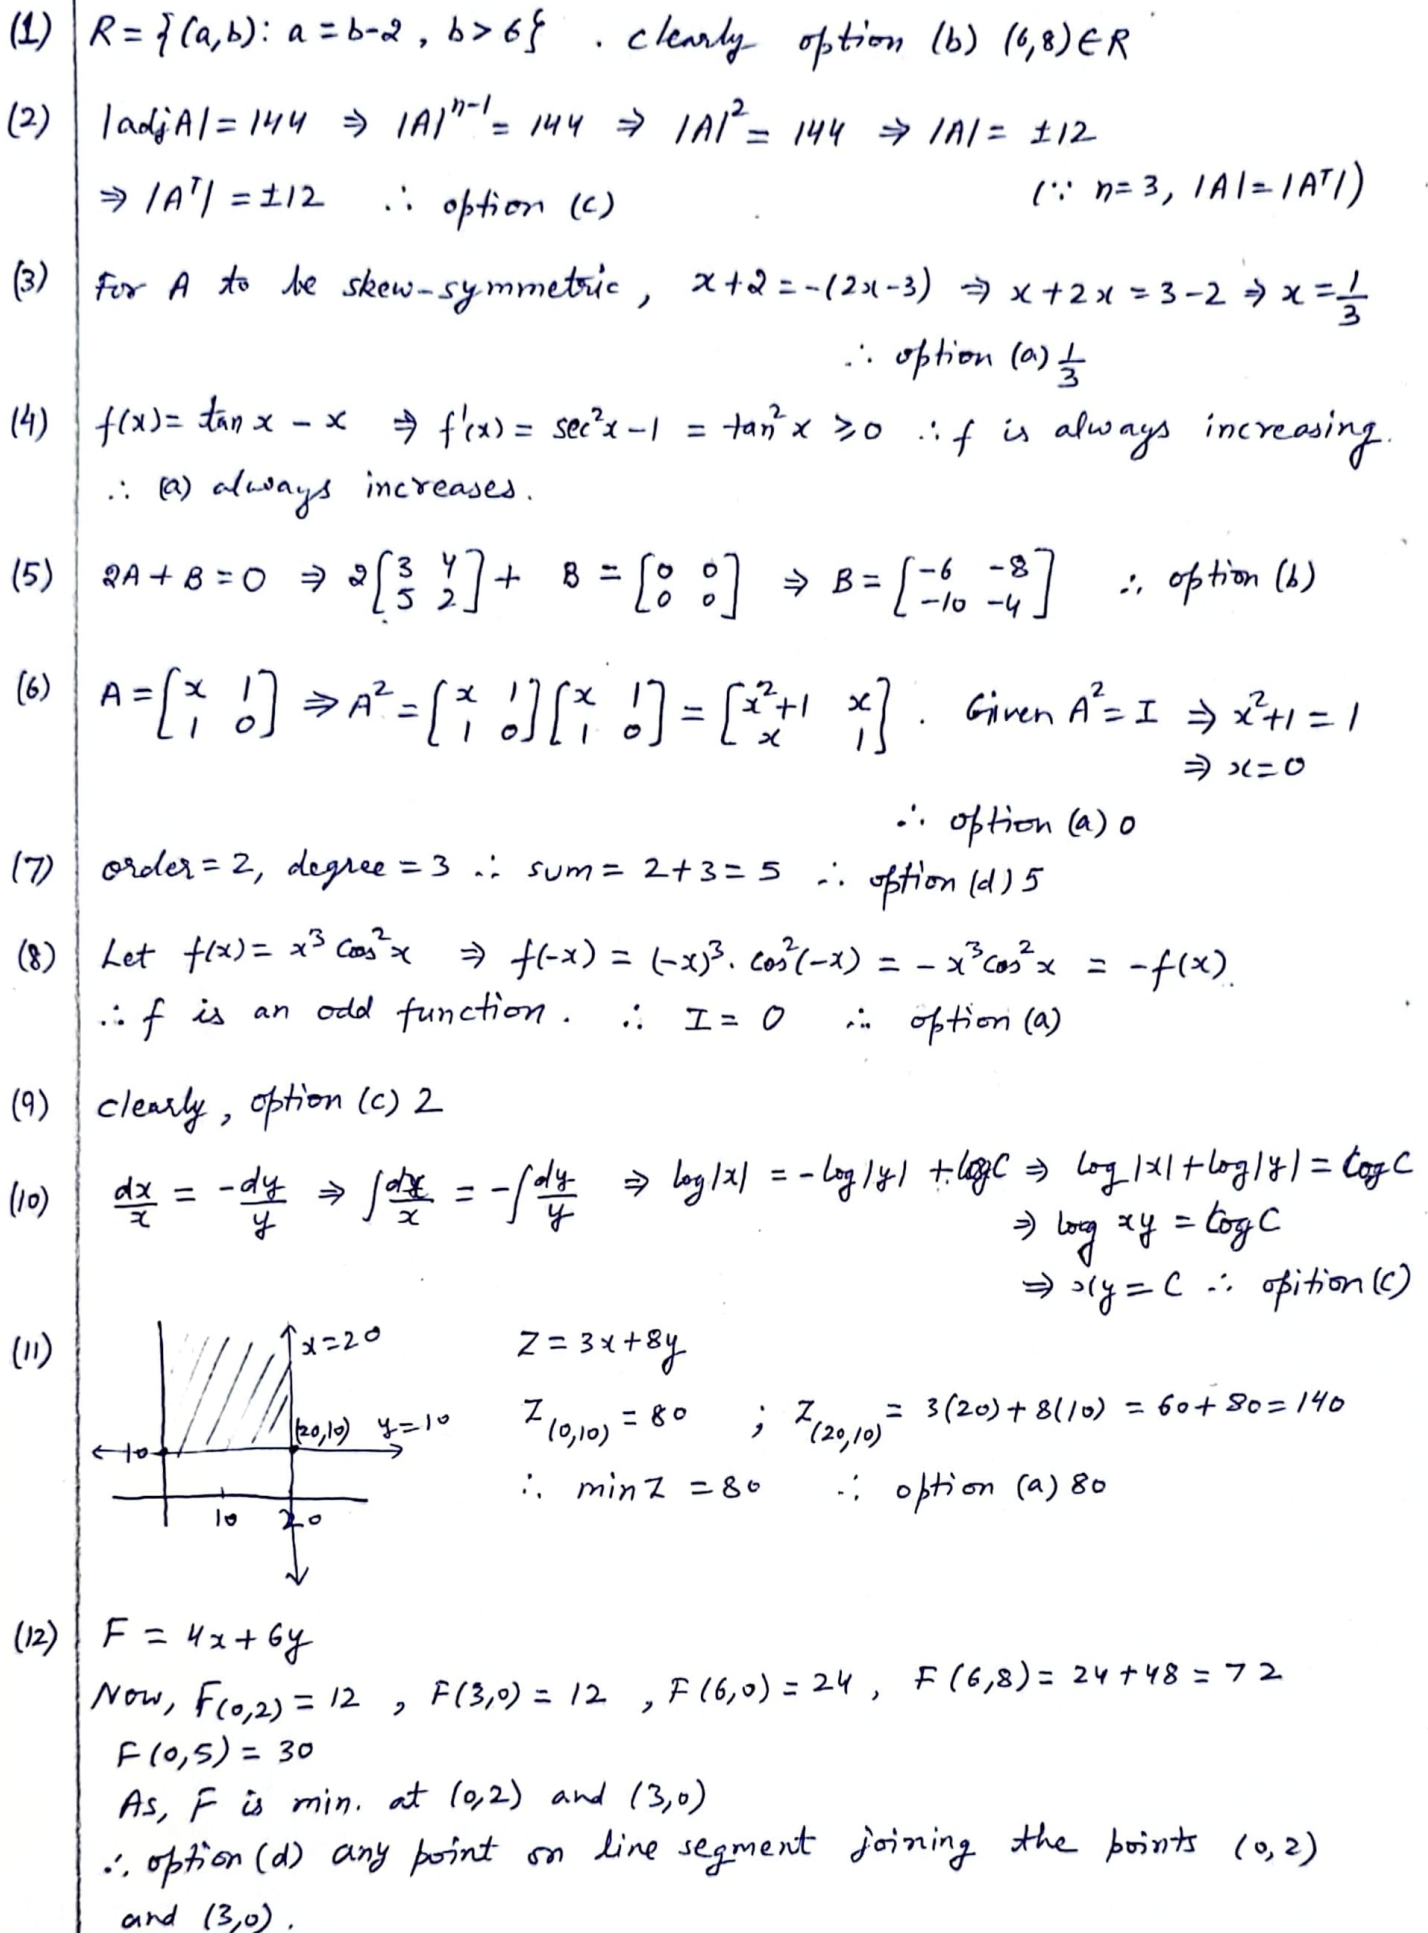 (1) R = {(a,b): a = b-2, b > 6} . clearly option (b) (6,8) ∈ R
(2) |adjA| = 144 ⇒ |A|ⁿ⁻¹ = 144 ⇒ |A|² = 144 ⇒ |A| = ±12
⇒ |Aᵀ| = ±12 ∴ option (c) (∵ n=3, |A|=|Aᵀ|)
(3) For A to be skew-symmetric, x+2 = -(2x-3) ⇒ x+2x = 3-2 ⇒ x = 1/3
∴ option (a) 1/3
(4) f(x) = tan x - x ⇒ f'(x) = sec²x - 1 = tan²x ≥ 0 ∴ f is always increasing.
∴ (a) always increases.
(5) 2A + B = 0 ⇒ 2[3 4; 5 2] + B = [0 0; 0 0] ⇒ B = [-6 -8; -10 -4] ∴ option (b)
(6) A = [x 1; 1 0] ⇒ A² = [x 1; 1 0][x 1; 1 0] = [x²+1 x; x 1]. Given A² = I ⇒ x²+1 = 1
⇒ x=0
∴ option (a) 0
(7) order = 2, degree = 3 ∴ sum = 2+3 = 5 ∴ option (d) 5
(8) Let f(x) = x³ cos²x ⇒ f(-x) = (-x)³. cos²(-x) = -x³cos²x = -f(x).
∴ f is an odd function. ∴ I = 0 ∴ option (a)
(9) clearly, option (c) 2
(10) dx/x = -dy/y ⇒ ∫dx/x = -∫dy/y ⇒ log|x| = -log|y| + logC ⇒ log|x| + log|y| = log C
⇒ log xy = log C
⇒ xy = C ∴ opition (c)
(11) x=20 Z = 3x+8y
(20,10) y=10 Z(0,10) = 80 ; Z(20,10) = 3(20) + 8(10) = 60 + 80 = 140
10
∴ min Z = 80 ∴ option (a) 80
10 20
(12) F = 4x + 6y
Now, F(0,2) = 12 , F(3,0) = 12 , F(6,0) = 24 , F(6,8) = 24 + 48 = 72
F(0,5) = 30
As, F is min. at (0,2) and (3,0)
∴ option (d) any point on line segment joining the points (0,2)
and (3,0).